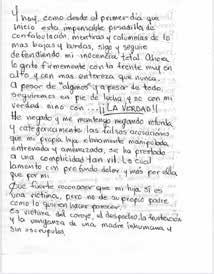 Y hoy, como desde el primer día que
inicio esta impensable pesadilla de
confabulación, mentiras y calumnias de lo
mas bajas y burdas, sigo y seguire
defendiendo mi inocencia total. Ahora
lo grito firmemente con la frente muy en
alto y con mas entereza que nunca.
A pesar de "algunos" y a pesar de todo,
seguiremos en pie de lucha y no con mi
verdad sino con... ¡¡¡LA VERDAD!!!
He negado y me mantengo negando rotunda
y categóricamente las falsas acusaciones
que mi propia hija obviamente manipulada,
entrenada y amenazada, se ha prestado
a una complicidad tan vil. Lo cual
lamento con profundo dolor y mas por ella
que por mi.
Que fuerte reconocer que mi hija si es
una víctima, pero no de su propio padre
como lo quieren hacer parecer.
Es víctima del coraje, el despecho, la frustración
y la venganza de una madre inhumana y
sin escrúpulos.